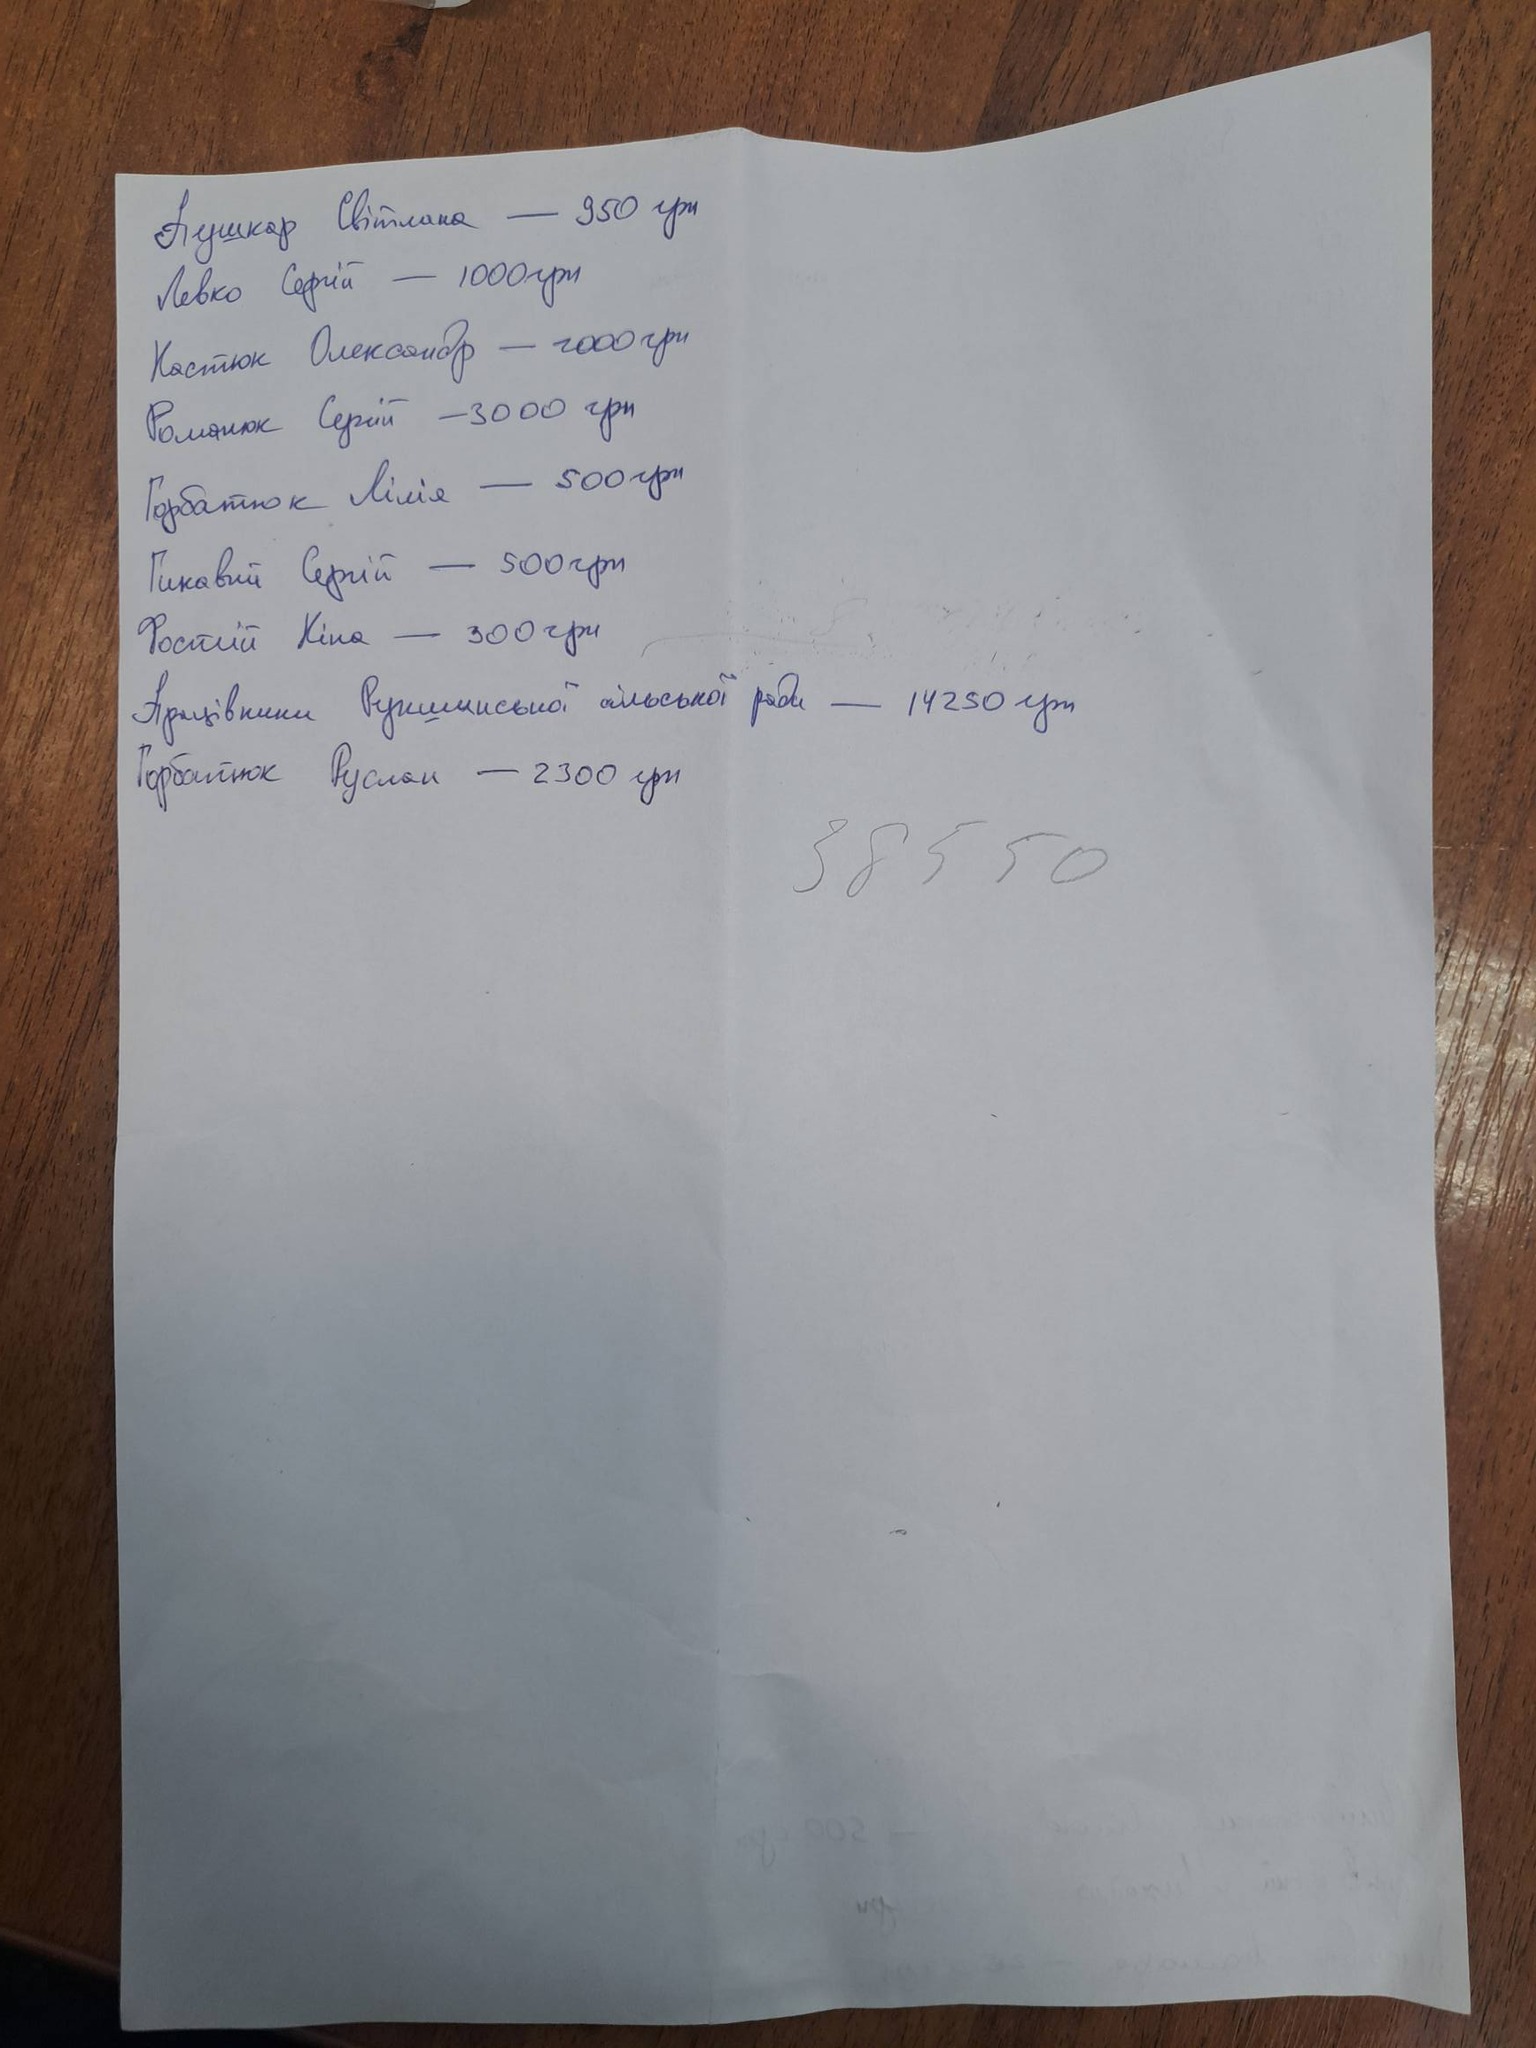 Пушкар Світлана — 950 грн
Левко Сергій — 1000 грн
Костюк Олександр — 2000 грн
Романюк Сергій — 3000 грн
Горбатюк Лілія — 500 грн
Гикавий Сергій — 500 грн
Ростий Ніна — 300 грн
Працівники Рукшинської сільської ради — 14250 грн
Горбатюк Руслан — 2300 грн
38550